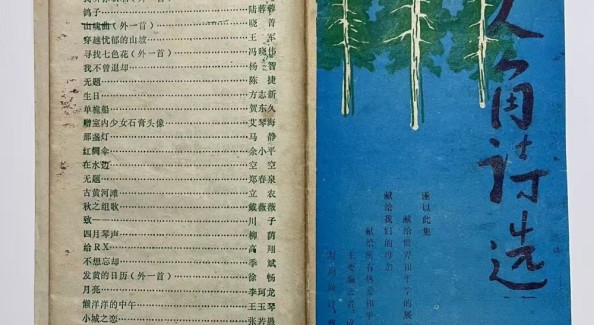 鸽子………陆蓉蓉
山魂曲（外一首）………晓菁
穿越忧郁的山坡………王军
寻找七色花（外一首）………冯晓伟
我不曾退却………杨智
无题………陈捷
生日………方志新
单桅船………贺东久
赠室内少女石膏头像………艾琴海
那盏灯………马静
红绸伞………余小平
在水边………空空
无题………郑春泉
古黄河滩………立农
秋之组歌………戴薇薇
致——………川子
四月琴声………柳荫
给RX………高翔
不想忘却………季斌
发黄的日历（外一首）………徐畅
月亮………李珂龙
懒洋洋的中午………王玉琴
小城之恋………张若愚
人角诗选
谨以此集
献给世界和平
献给我们的
献给所有热爱和平